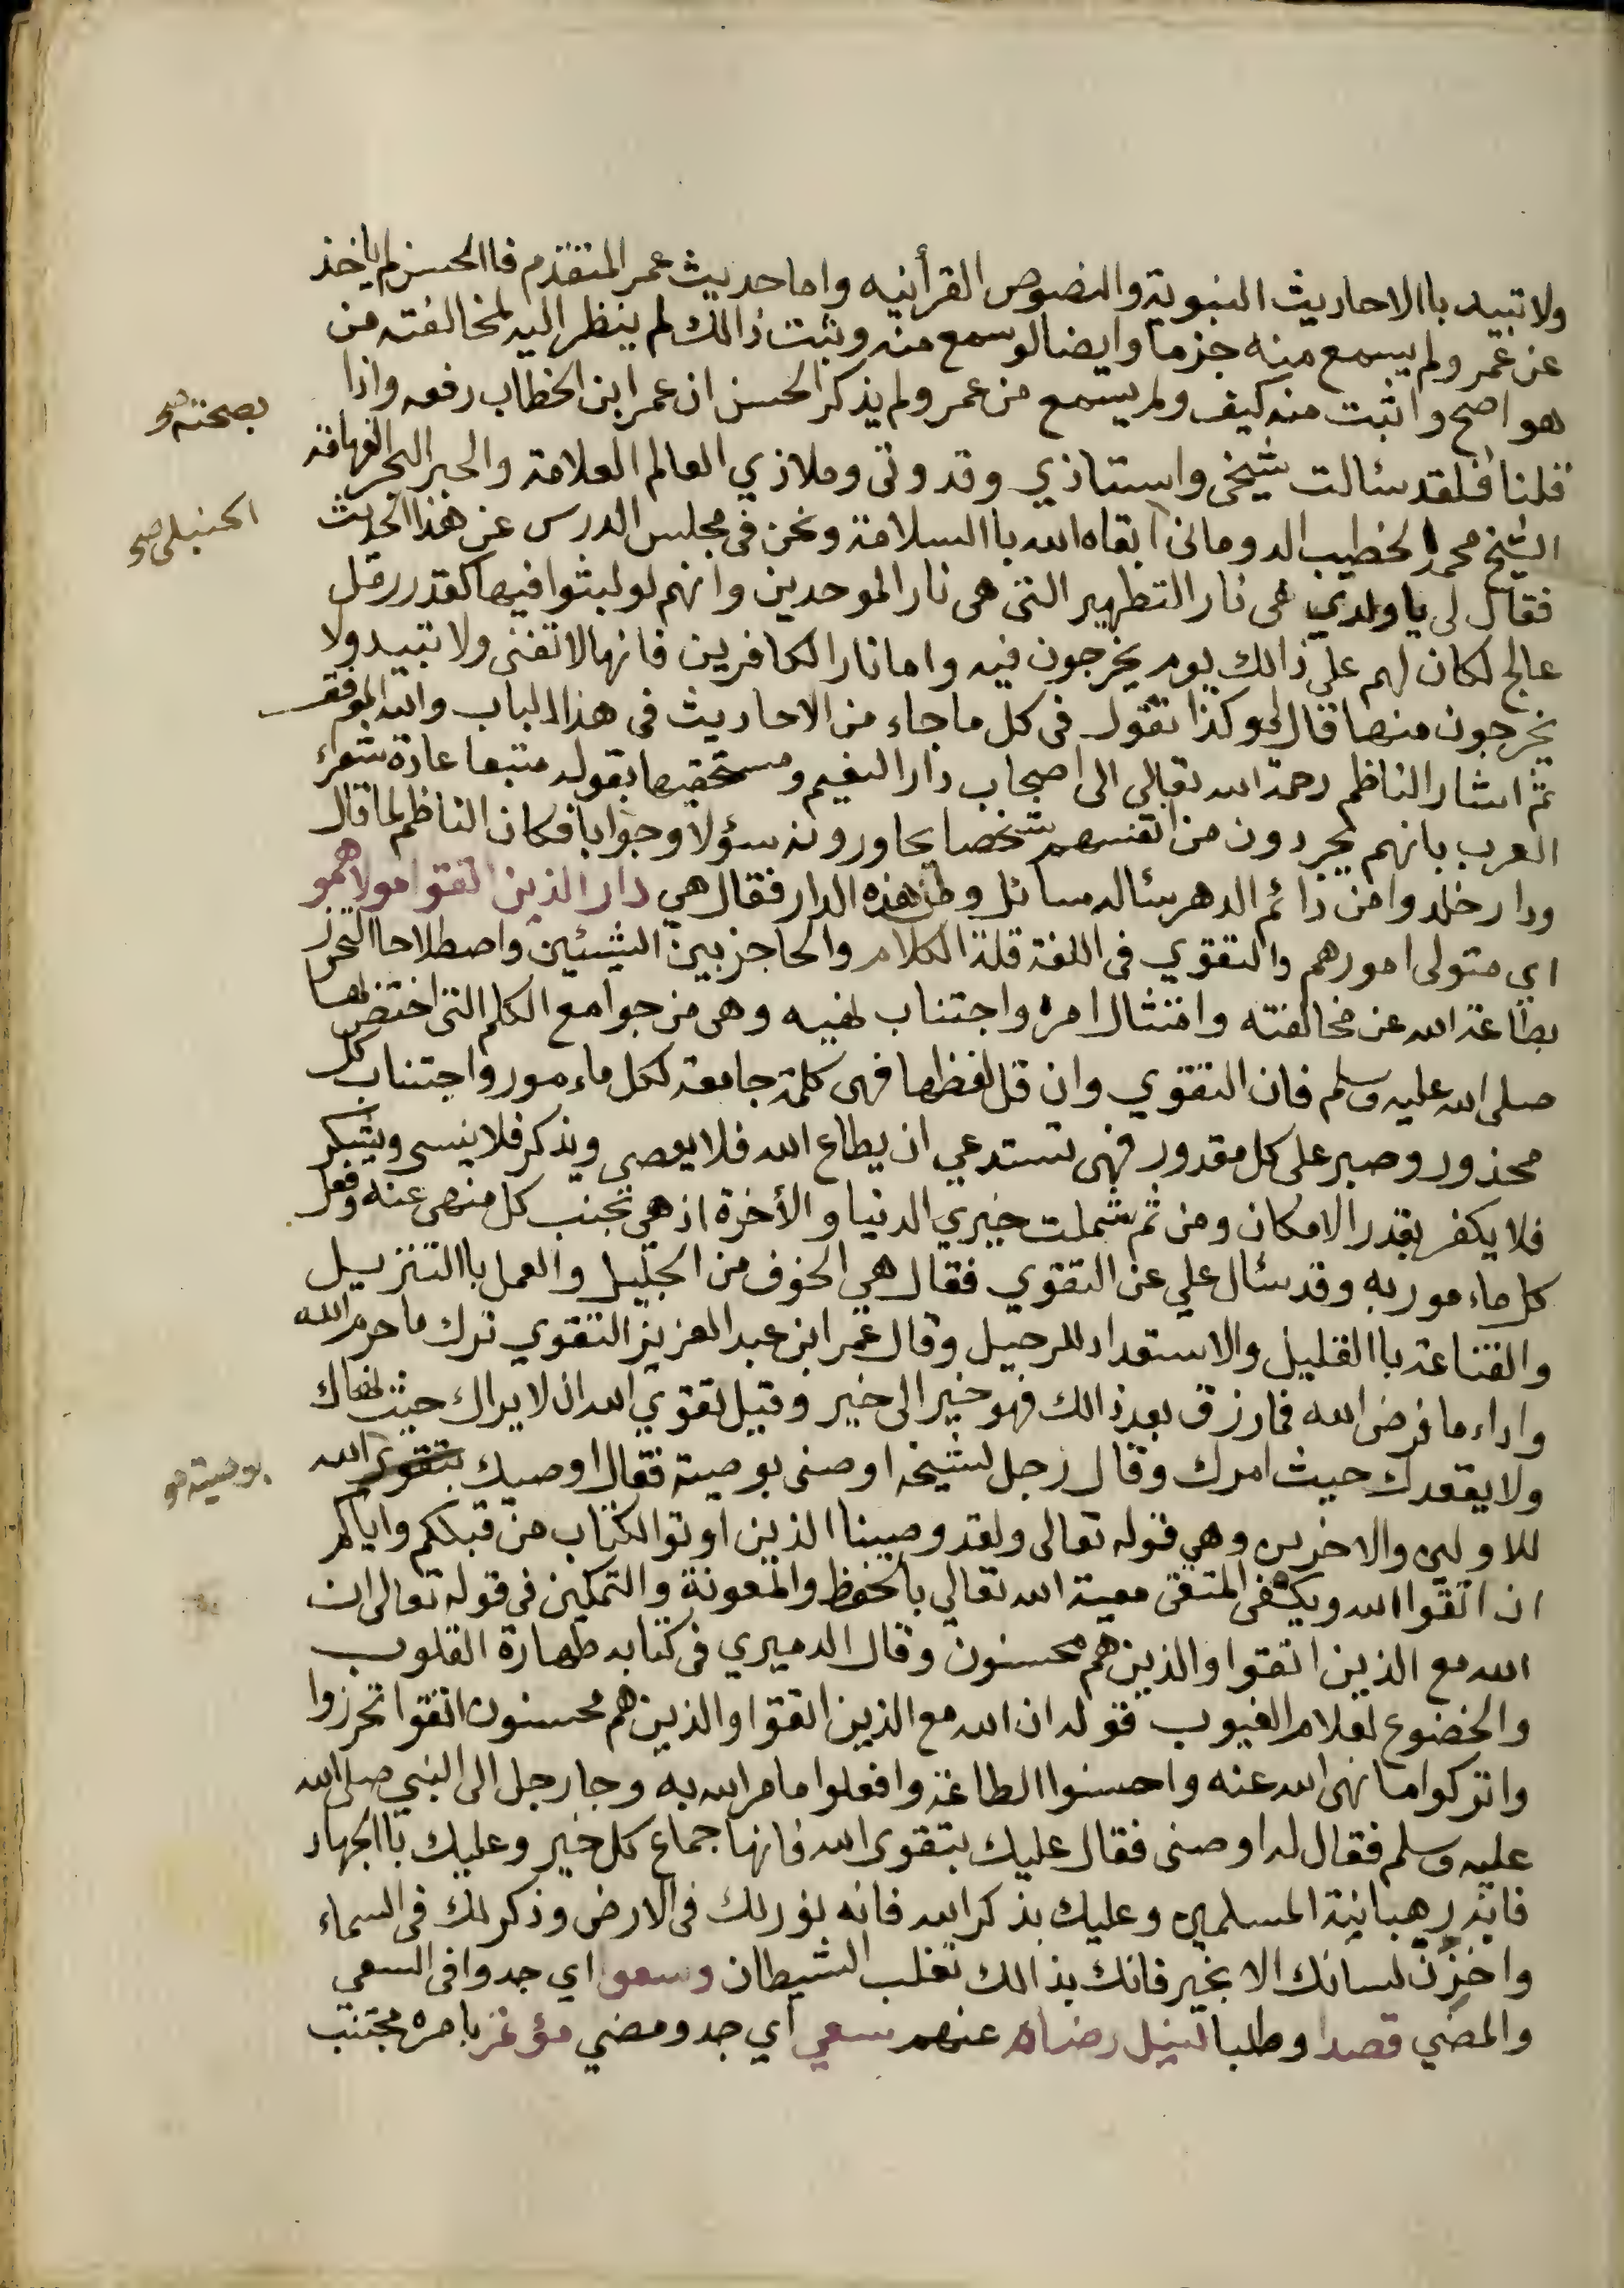 ولا تبيد باالاحاديث النبوية والنصوص القرأنيه واما حديث عمر المتقدم فاالحسن لم ياخذ
عن عمر ولم يسمع منه جزما وايضا لو سمع منه وثبت ذالك لم ينظر اليه لمخالفته من
هو اصح واثبت منه كيف ولم يسمع من عمر ولم يذكر الحسن ان عمر ابن الخطاب رفعه واذا
بصحته صح
قلنا فلقد سئالت شيخى واستاذي وقدوتى وملاذي العالم العلامة والحبر البحر الفهامة
الشيخ محمد الخطيب الدومانى ابقاه الله باالسلامة ونحن فى مجلس الدرس عن هذا الحديث
الحنبلى صح
فقال لى يا ولدي هى نار التطهير التى هى نار الموحدين وانهم لو لبثوا فيها كقدر رمل
عالج لكان لهم على ذالك يوم يخرجون فيه واما نار الكافرين فانها لا تفنى ولا تبيد ولا
يخرجون منها قال لى وكذا تقول فى كل ما جاء من الاحاديث فى هذا الباب والله الموفق
ثم اشار الناظم رحمة الله تعالي الى اصحاب دار النعيم ومستحقيها بقوله متبعا عادة شعراء
العرب بانهم يجردون من انفسهم شخصا يحاورونه سؤلا وجوابا فكان الناظم لما قال
ودار خلد وامن دائم الدهر سئاله سائل وطن هذه الدار فقال هي دار الذين اتقوا مولاهمو
اي متولى امورهم والتقوي فى اللغة قلة الكلام والحاجز بين الشيئين واصطلاحا التحرز
بطاعة الله عن مخالفته وامتثال امره واجتناب نهيه وهى من جوامع الكلم التى اختص بها
صلى الله عليه وسلم فان التقوي وان قل لفظها فهى كلمة جامعة لكل ماءمور واجتناب كل
محذور وصبر على كل مقدور فهى تستدعي ان يطاع الله فلا يعصي ويذكر فلا ينسى ويشكر
فلا يكفر بقدر الامكان ومن ثم شملت خيري الدنيا والأخرة اذ هي تجنب كل منهى عنه وفعل
كل ماءمور به وقد سئال علي عن التقوي فقال هي الخوف من الجليل والعمل باالتنزيل
والقناعة باالقليل والاستعداد للرحيل وقال عمر ابن عبد العزيز التقوي ترك ما حرم الله
واداء ما فرض الله فما رزق بعد ذالك فهو خير الى خير وقيل تقوي الله ان لا يراك حيث نهاك
ولا يفقدك حيث امرك وقال رجل لشيخه اوصنى بوصية فقال اوصيك بتقوى الله
بوصية صح
للاولين والاخرين وهى قوله تعالى ولقد وصينا الذين اوتو الكتاب من قبلكم واياكم
ان اتقوا الله ويكفى المتقى معية الله تعالي بالحفظ والمعونة والتمكين فى قوله تعالى ان
الله مع الذين اتقوا والذين هم محسنون وقال الدميري فى كتابه طهارة القلوب
والخضوع لعلام الغيوب قوله ان الله مع الذين اتقوا والذين هم محسنون اتقوا تحرزوا
واتركوا ما نهى الله عنه واحسنوا الطاعة وافعلوا ما مر الله به وجا رجل الى النبي صلى الله
عليه وسلم فقال له اوصنى فقال عليك بتقوى الله فانها جماع كل خير وعليك باالجهاد
فانه رهبانية المسلمين وعليك بذكر الله فانه نور لك فى الارض وذكر لك فى السماء
واخزن لسانك الا بخير فانك بذالك تغلب الشيطان وسعوا اي جدوا فى السعي
والمضي قصدا وطلبا لنيل رضاه عنهم سعي اي جد ومضي مؤتمر بامره مجتنب